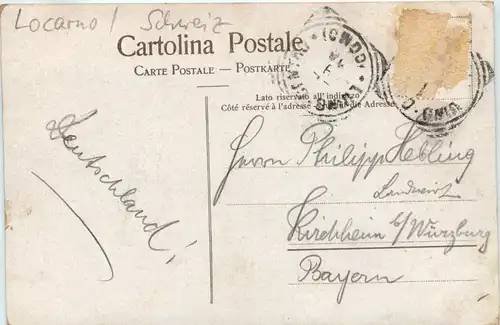 Locarno / Schweiz
Cartolina Postale
CARTE POSTALE — POSTKARTE
Lato riservato all'indirizzo
Côté réservé à l'adresse der Adresse
Deutschland!
Herrn Philipp Hebling
Landwirt
Kirchheim b/Wurzburg
Bayern